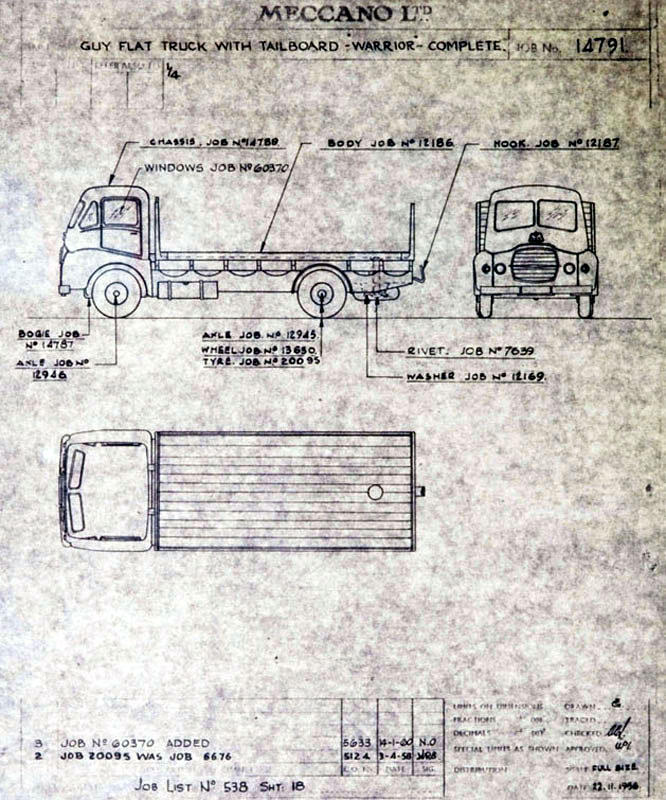 MECCANO LTD
GUY FLAT TRUCK WITH TAILBOARD - WARRIOR - COMPLETE. JOB No. 14791
1/4
CHASSIS. JOB Nº14789
BODY JOB Nº 12186
HOOK. JOB Nº 12187
WINDOWS JOB Nº 60370
BOGIE JOB
Nº 14787
AXLE JOB Nº
12946
AXLE JOB. Nº 12945.
WHEEL JOB Nº 13650.
TYRE. JOB Nº 20095
RIVET. JOB Nº 7639
WASHER JOB Nº 12169.
3 JOB Nº 60370 ADDED 5633 14-1-60 N.O
2 JOB 20095 WAS JOB 6676 5124 3-4-58
DATE SIG.
JOB LIST Nº 538 SHT. 18
LIMITS ON DIMENSIONS
FRACTIONS
DECIMALS
SPECIAL LIMITS AS SHOWN
DISTRIBUTION
DRAWN.
TRACED.
CHECKED
APPROVED.
SCALE FULL SIZE.
DATE 22.11.1956